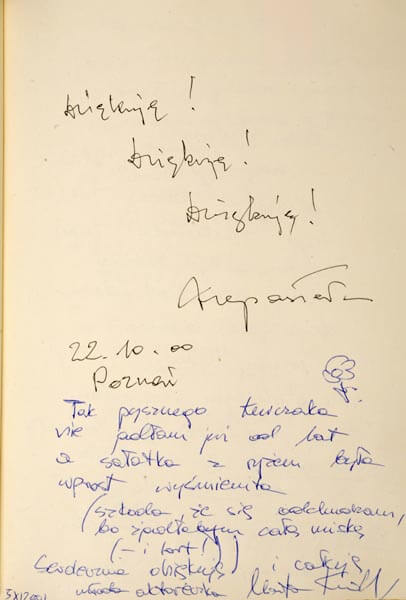 Dziękuję!
Dziękuję!
Dziękuję!
22.10.00
Poznań
Tak pysznego kurczaka
nie jadłam już od lat
a sałatka z ryżem była
wprost wyśmienita
(szkoda, że się odchudzam,
bo zjadłabym całą miskę
(– i tort!))
Serdecznie dziękuję i całuję
młoda aktoreczka